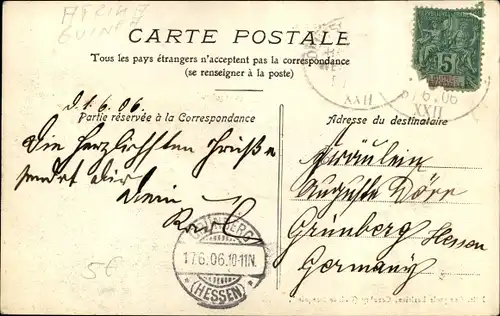 AFRIKA
GUINEA
CARTE POSTALE
Tous les pays étrangers n'acceptent pas la correspondance
(se renseigner à la poste)
5
XXII
1.6.06
XXI
d. 1.6.06.
Partie réservée à la Correspondance
Die herzlichsten Grüße
sendet Dir
Dein
Karl
GRÜNBERG
17.6.06.10-11N.
(HESSEN)
5€
Adresse du destinataire
Fräulein
Auguste Döre
Grünberg Hessen
Germany